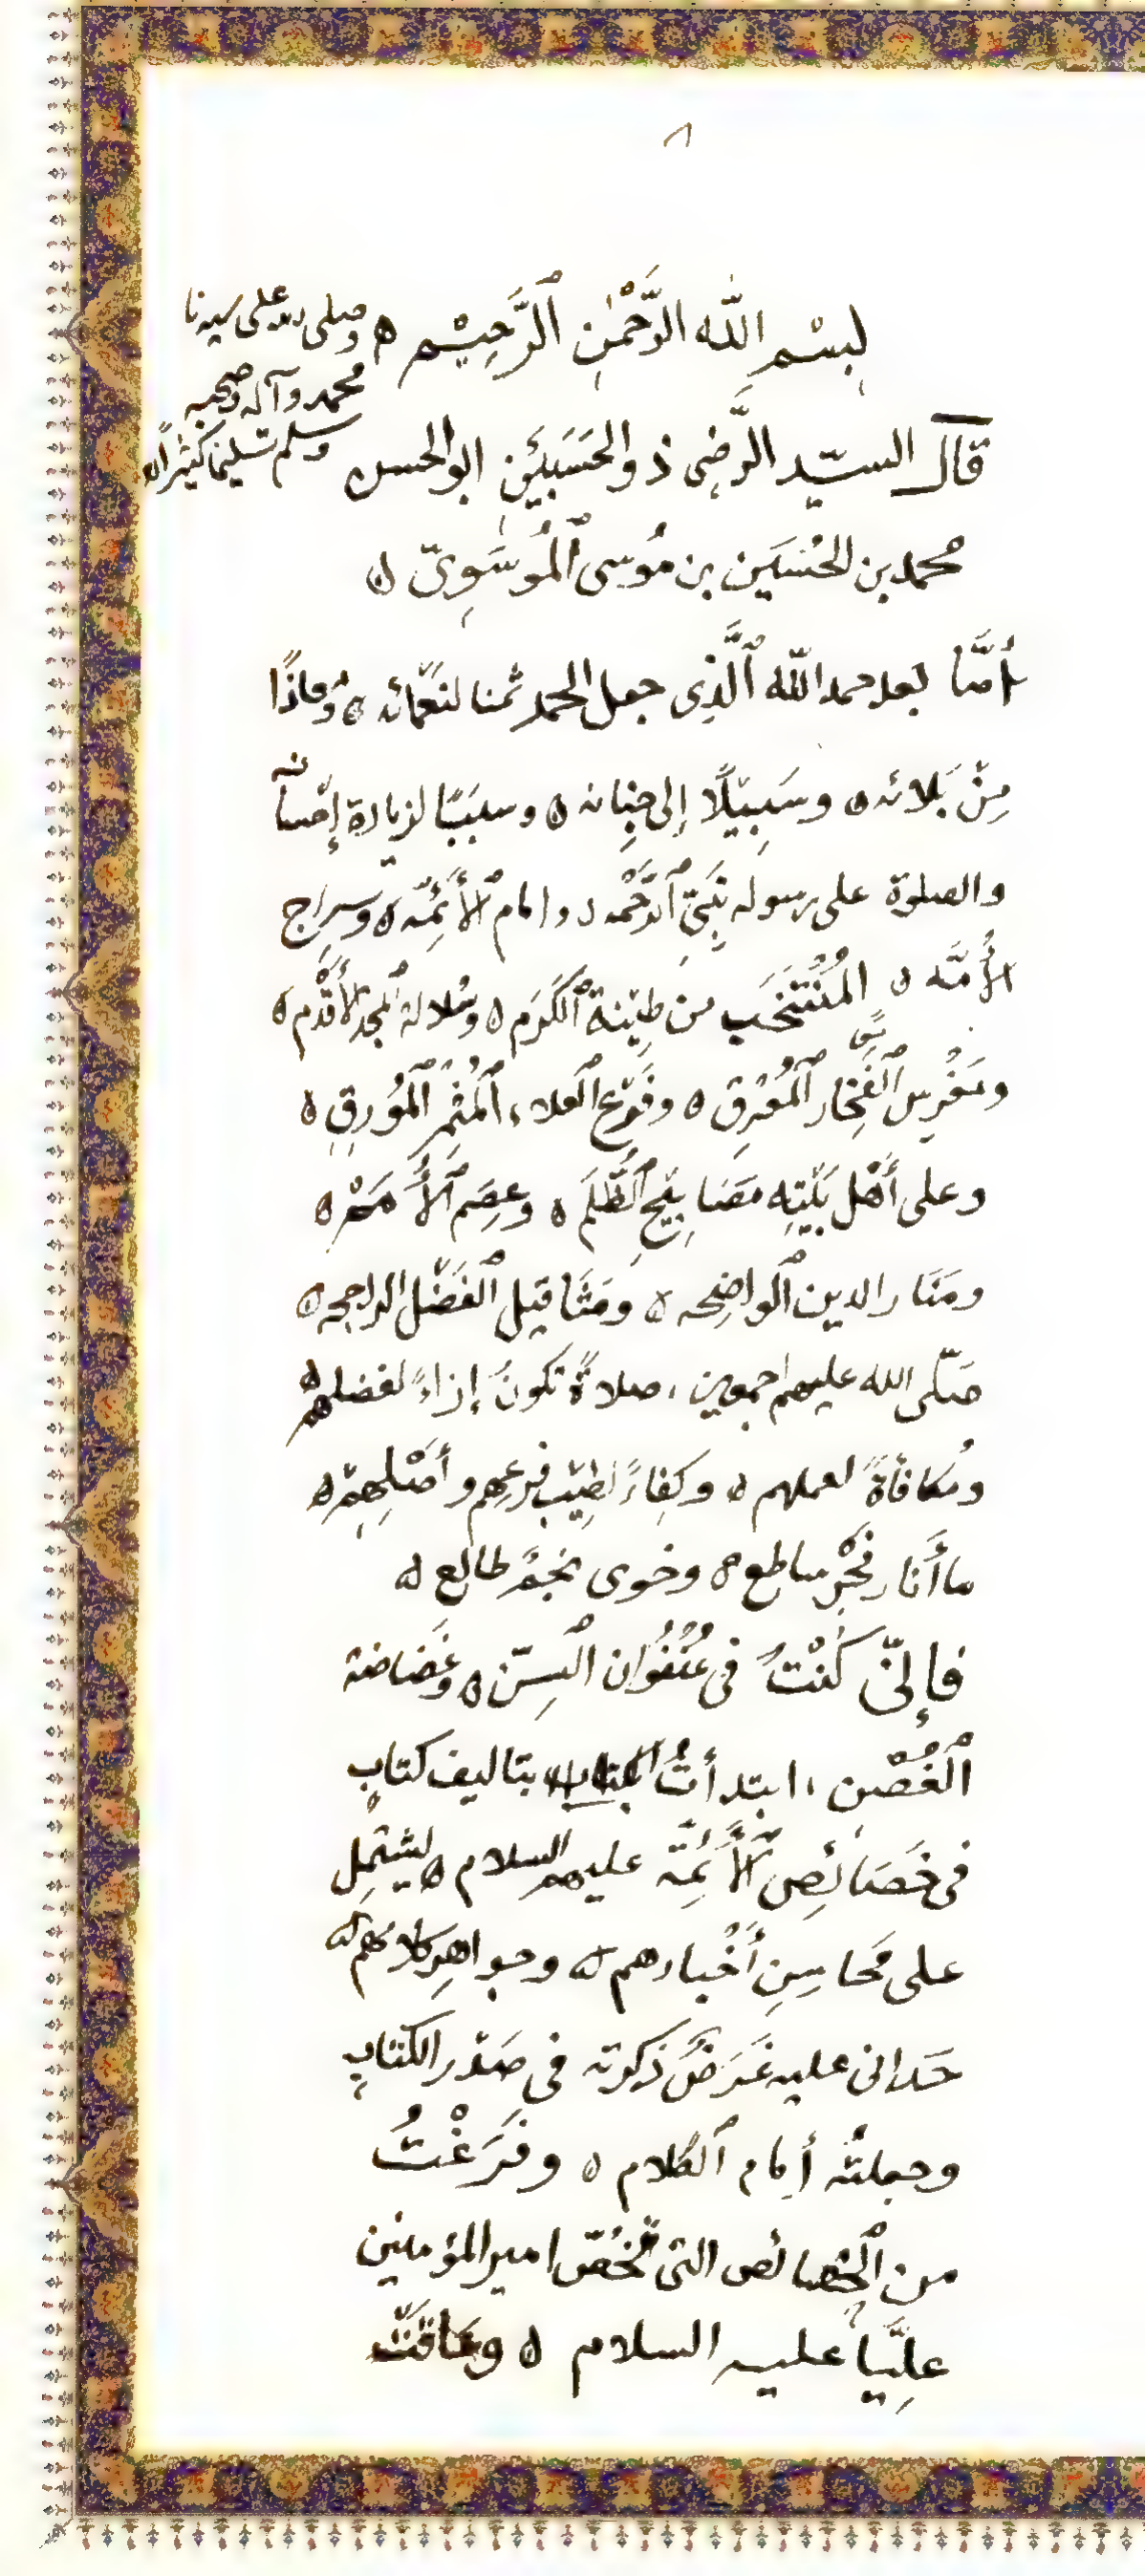 ٨
بِسْمِ اللّٰه الرَّحْمٰنِ ٱلرَّحِيْمِ ه وصلى الله على سيدنا
محمد وآله وصحبه
وسلم تسليمًا كثيرًا ه
قال السيّد الرَّضِي ذو الحَسَبَيْنِ ابو الحسن
محمد بن الحُسَين بن مُوسى ٱلْمُوسَوِيّ ه
أمَّا بعد حمد اللّٰه ٱلَّذِي جعل الحمد ثمنا لنَعْمائه ه ومعاذًا
مِنْ بَلائه ه وسَبِيْلًا إلى جِنانه ه وسبَبًا لزيادة إحْسانه
والصلوة على رسوله نَبِيِّ ٱلرَّحْمه ه وامام ٱلأَئِمَّه ه وسِراج
الأُمَّه ه المُنْتَخَب من طِيْنة ٱلكَرَم ه وسُلالة ٱلمجد ٱلأَقْدَم ه
ومَغْرِس ٱلْفَخَار ٱلْمُعْرِق ه وفَرْعِ العلاء، ٱلْمُثْمِر ٱلْمُوْرِقِ ه
وعلى أَهْل بَيْتِه مَصَابِيْحِ ٱلظُّلَم ه وعِصَم ٱلأُمَمْ ه
ومَنَار الدين ٱلْواضِحه ه ومَثَاقيل ٱلْفَضْل الراجحه ه
صَلّى الله عليهم اجمعين، صلاةً تكونُ إزاءً لفضلهم ه
ومُكافأةً لعملهم ه وكِفاءً لطِيْب فرعِهم وأَصْلِهِمْ ه
ما أَنار فَجْرٌ ساطع ه وخوى نجمٌ طالع ه
فإنّي كُنْتُ في عُنْفُوان السِنّ ه وغَضاضة
ٱلْغُصْن، ابتدأتُ بتاليف كتابٍ
في خَصَائصِ ٱلأَئِمَّة عليهم السلام ه يشتمِل
على مَحاسِنِ أَخْبارهم ه وجواهِر كلامهم ه
حَداني عليه غَرَضٌ ذكرته في صَدْر الكتابِ
وجعلتُه أمام ٱلكلام ه وفَرَغْتُ
من ٱلْخصائص التي تَخُصّ امير المؤمنين
عليًّا عليه السلام ه وعَاقَتْ